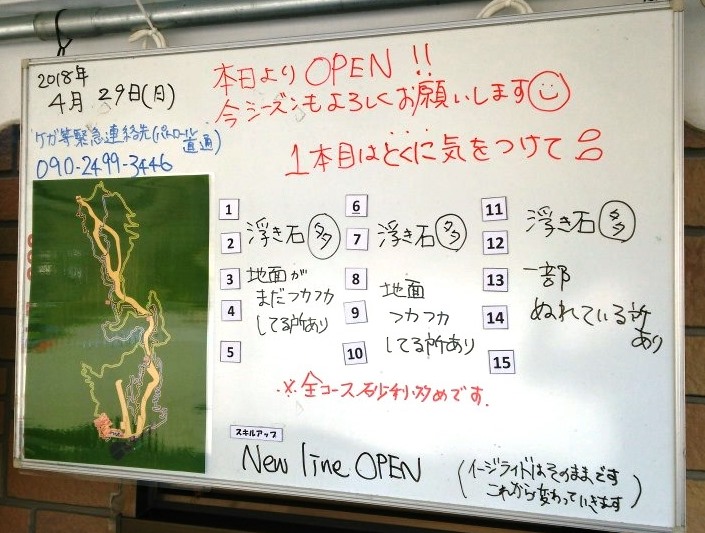 2018年
4月29日(日)
本日より OPEN !!
今シーズンもよろしくお願いします
ケガ等緊急連絡先(パトロール直通)
090-2499-3446
1本目はとくに気をつけて
1
2
3
4
5
浮き石 多
地面が
まだフカフカ
してる所あり
6
7
8
9
10
浮き石 多
地面
フカフカ
してる所あり
11
12
13
14
15
浮き石 多
一部
ぬれている所
あり
※全コース砂利多めです.
スキルアップ
New line OPEN
(イージライドはそのままです
これから変わっていきます)